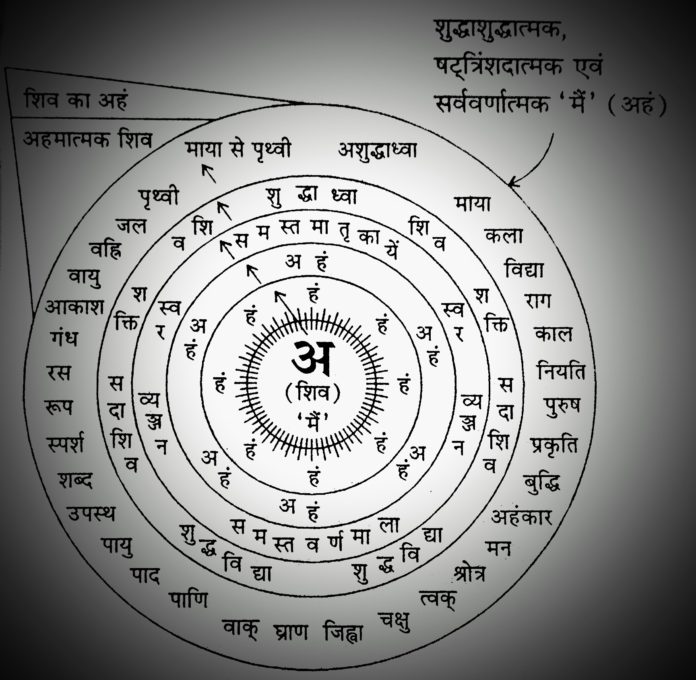 शुद्धाशुद्धात्मक,
षट्त्रिंशदात्मक एवं
सर्ववर्णात्मक ‘मैं’ (अहं)
शिव का अहं
अहमात्मक शिव
माया से पृथ्वी
अशुद्धाध्वा
माया
कला
विद्या
राग
काल
नियति
पुरुष
प्रकृति
बुद्धि
अहंकार
मन
श्रोत्र
त्वक्
चक्षु
जिह्वा
घ्राण
वाक्
पाणि
पाद
पायु
उपस्थ
शब्द
स्पर्श
रूप
रस
गंध
आकाश
वायु
वह्नि
जल
पृथ्वी
शुद्धाध्वा
शिव
शिव
शक्ति
शक्ति
सदाशिव
सदाशिव
शुद्ध विद्या
शुद्ध विद्या
समस्त मातृकायें
स्वर
स्वर
व्यञ्जन
व्यञ्जन
समस्त वर्णमाला
अहं
अहं
अहं
अहं
अहं
अहं
हं
हं
हं
हं
हं
हं
हं
हं
अ
(शिव)
‘मैं’